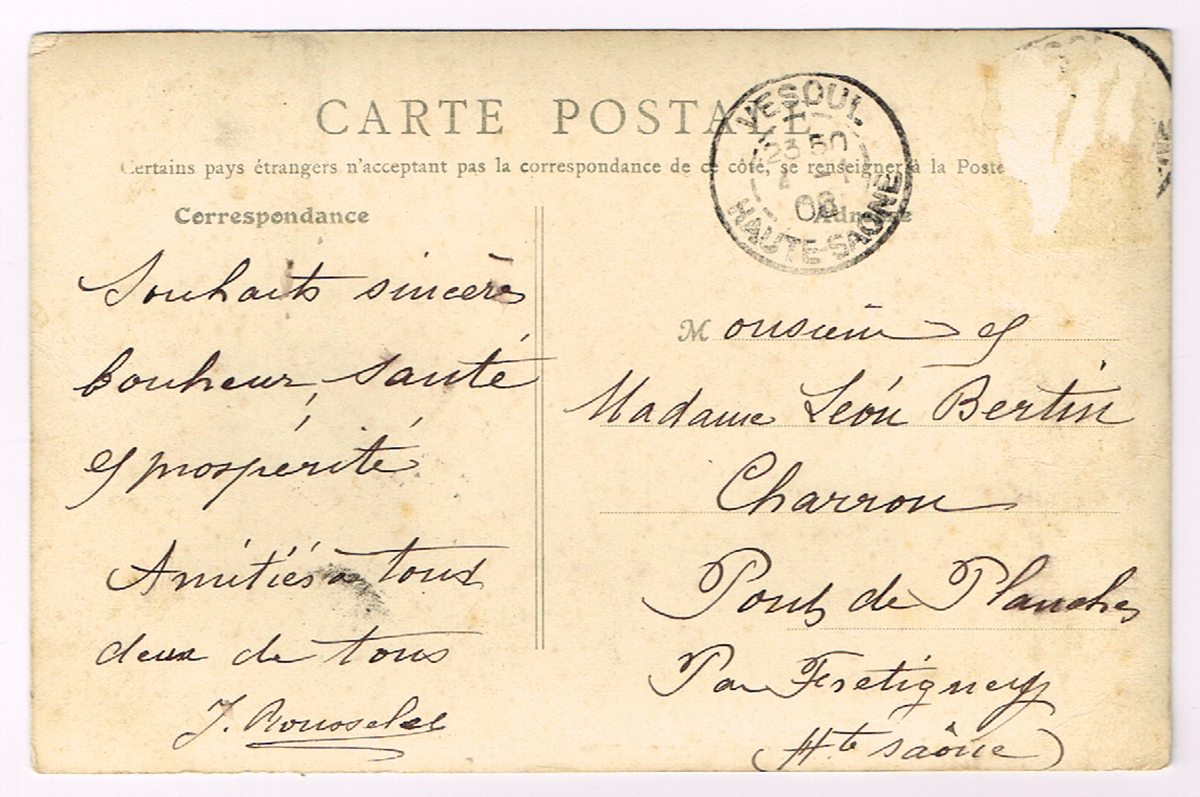 CARTE POSTALE
Certains pays étrangers n'acceptant pas la correspondance de ce côté, se renseigner à la Poste
VESOUL
23 50
08
HAUTE-SAONE
Correspondance
Adresse
Souhaits sincères
bonheur, santé
et prospérité
Amitiés à tous
deux de tous
J. Rousselet
Monsieur et
Madame Léon Bertin
Charron
Pont de Planches
Par Fretigney
(Hte saône)